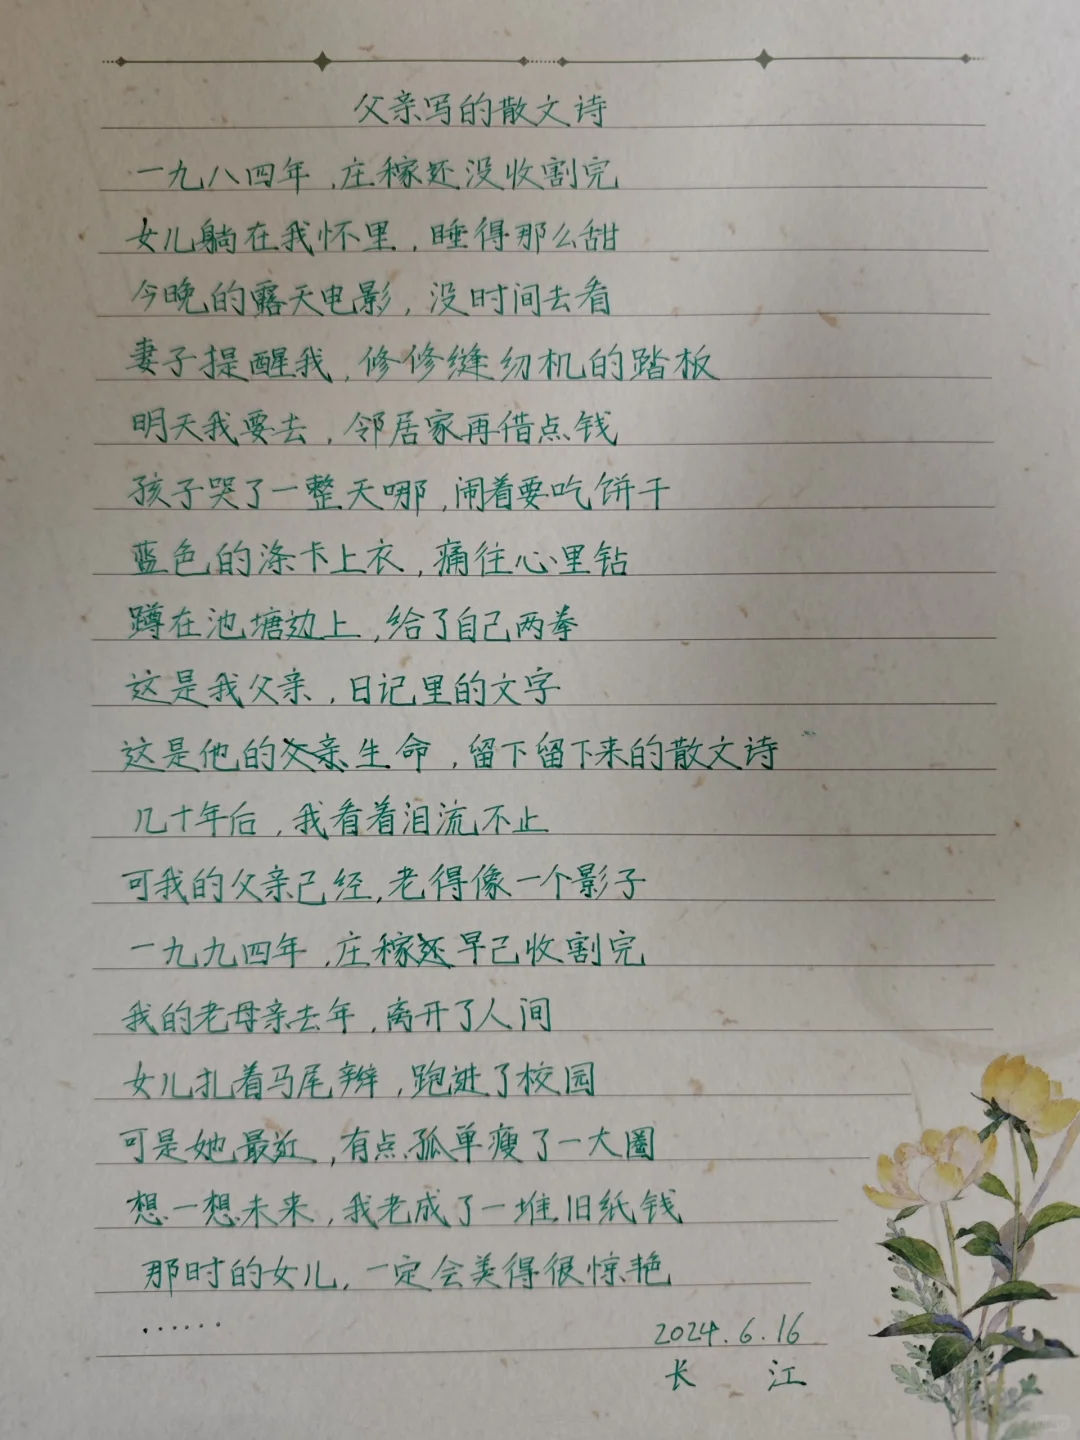 父亲写的散文诗
一九八四年,庄稼还没收割完
女儿躺在我怀里,睡得那么甜
今晚的露天电影,没时间去看
妻子提醒我,修修缝纫机的踏板
明天我要去,邻居家再借点钱
孩子哭了一整天哪,闹着要吃饼干
蓝色的涤卡上衣,痛往心里钻
蹲在池塘边上,给了自己两拳
这是我父亲,日记里的文字
这是他的父亲生命,留下留下来的散文诗
几十年后,我看着泪流不止
可我的父亲已经,老得像一个影子
一九九四年,庄稼还早已收割完
我的老母亲去年,离开了人间
女儿扎着马尾辫,跑进了校园
可是她最近,有点孤单瘦了一大圈
想一想未来,我老成了一堆旧纸钱
那时的女儿,一定会美得很惊艳
······
2024.6.16
长 江